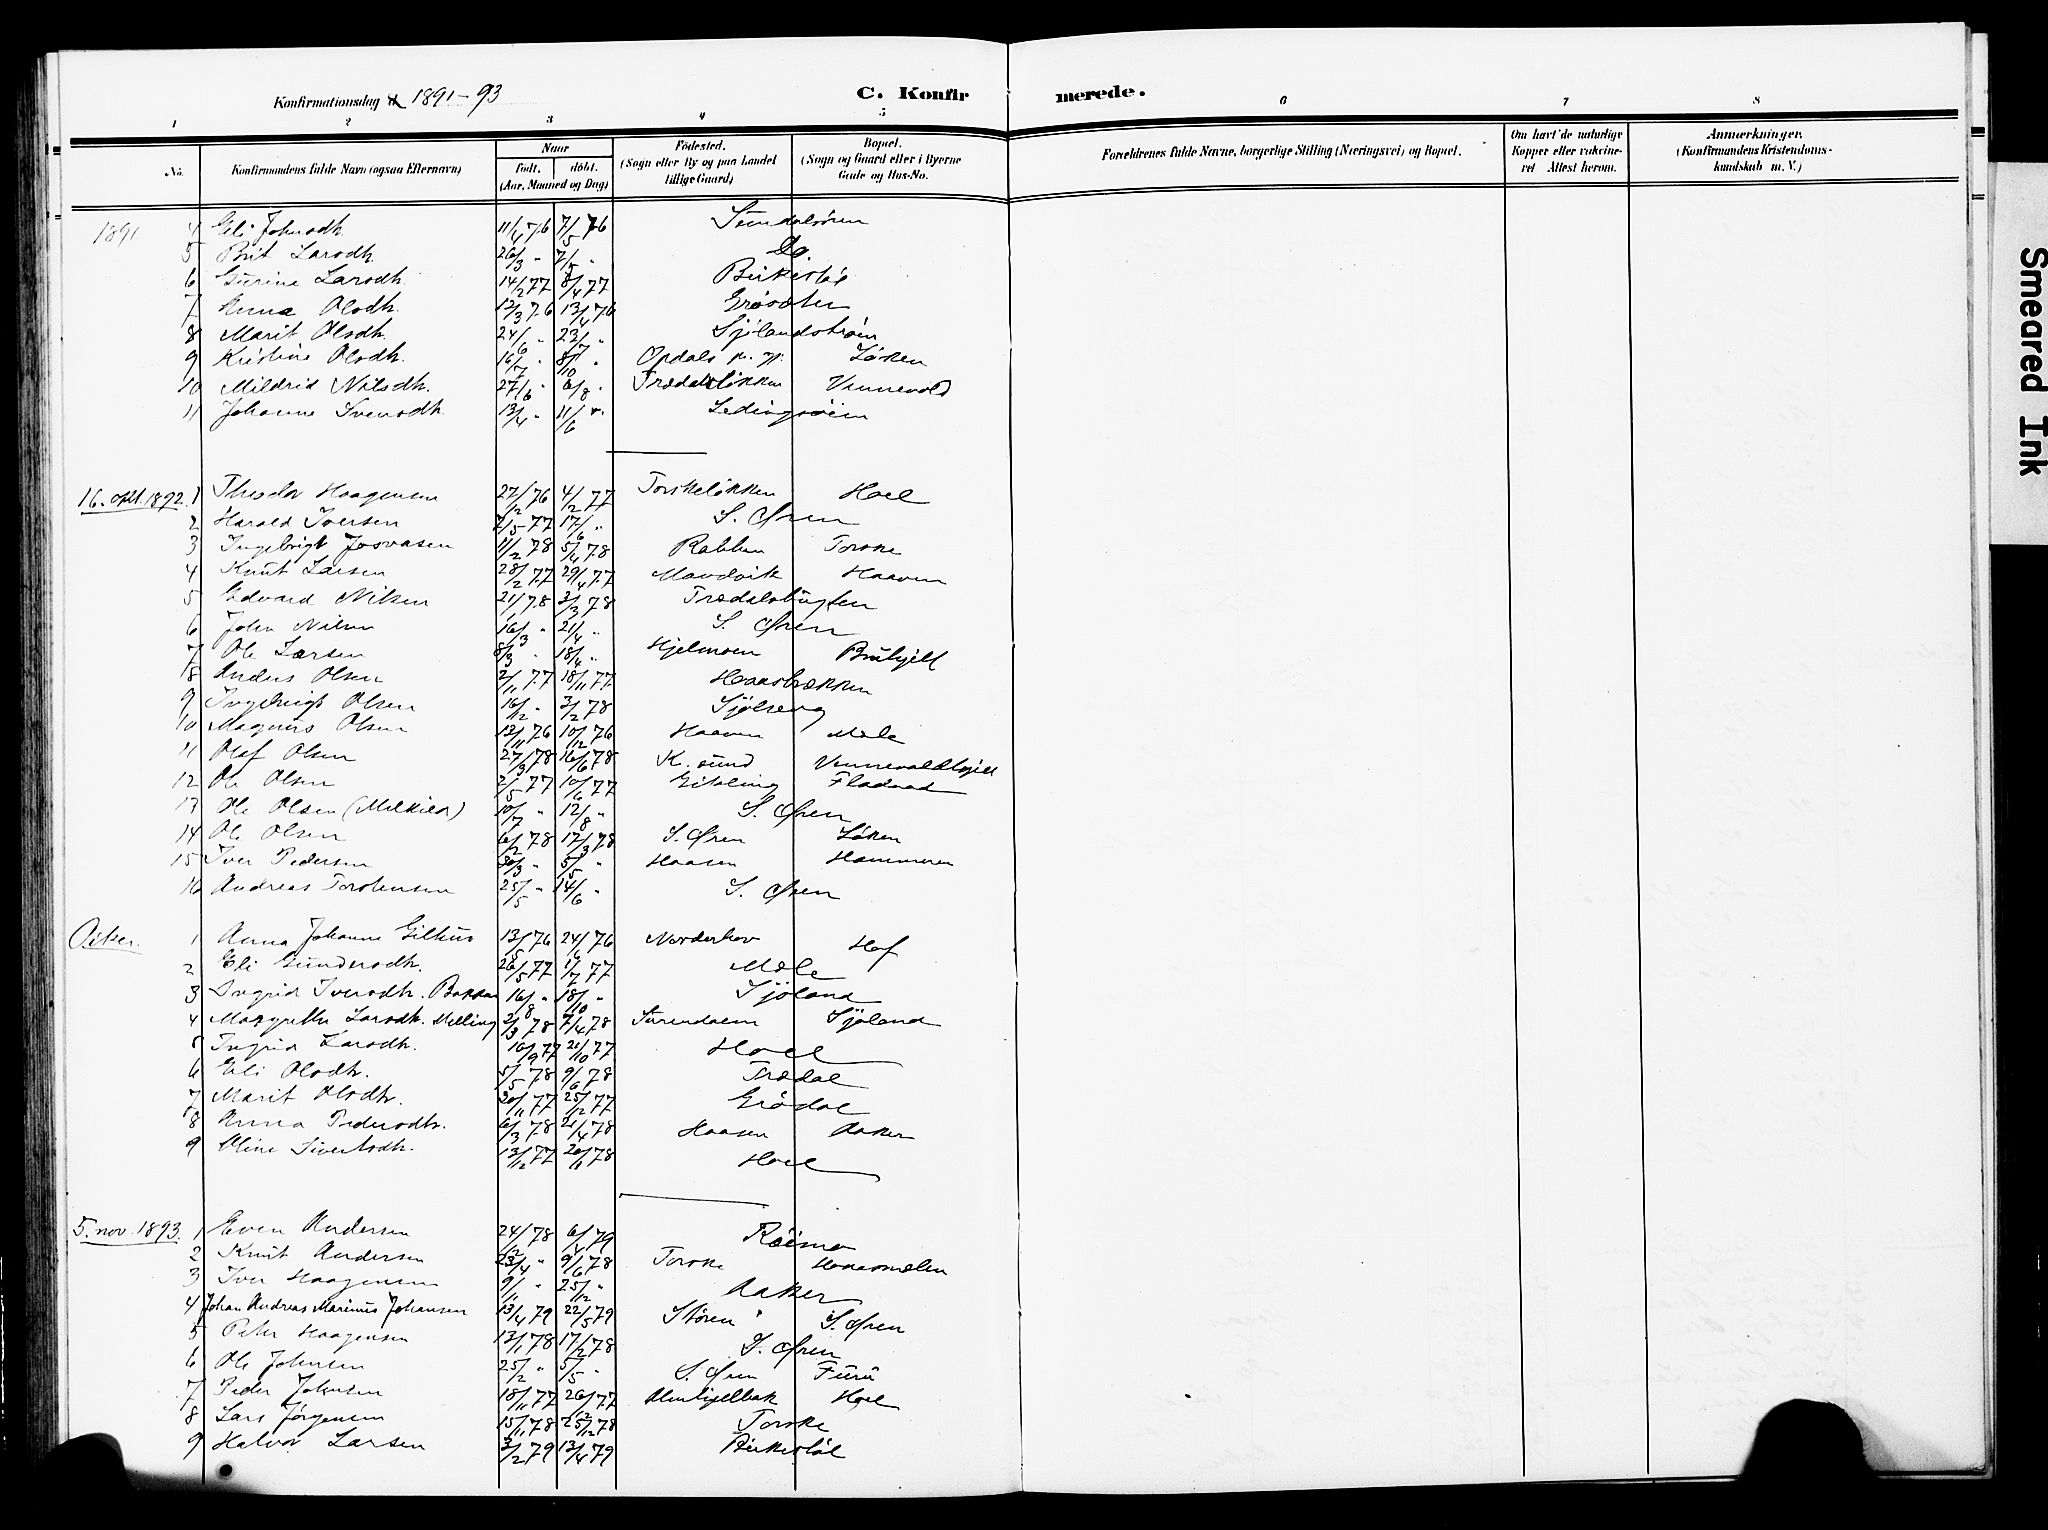 Konfirmationsdag 1891-93
C. Konfirmerede.
1 2 3 4 5 6 7 8
No.
Konfirmandens fulde Navn (ogsaa Efternavn)
Naar
født. døbt.
(Aar, Maaned og Dag)
Fødested.
(Sogn eller By og paa Landet
tillige Gaard)
Bopæl.
(Sogn og Gaard eller i Byerne
Gade og Hus-No.
Forældrenes fulde Navne, borgerlige Stilling (Næringsvei) og Bopæl.
Om havt de naturlige
Kopper eller vakcine-
ret Attest herom.
Anmærkninger.
(Konfirmandens Kristendoms-
kundskab m. V.)
1891 4 Eli Johnsdtr. 11/4 76 7/5 76 Sundalsøren
5 Brit Larsdtr. 26/3 " 7/5 " Do.
6 Gurine Larsdtr. 14/2 77 8/4 77 Birkestøl
7 Anna Olsdtr. 12/3 76 13/4 76 Grøsæter
8 Marit Olsdtr. 24/6 " 23/7 " Sjølandstrøen
9 Kristine Olsdtr. 16/7 " 8/10 " Opdals p. gj. Løken
10 Mildrid Nilsdtr. 27/6 " 6/8 " Trædalsløkken Vennevold
11 Johanne Iversdtr. 13/4 " 11/6 " Ledingsøien
16. okt. 1892. 1 Theodor Haagensen 27/12 76 4/2 77 Torskeløkken Hoel
2 Harald Iversen 7/5 77 17/6 " S. Øren
3 Ingebrigt Josvasen 11/2 78 5/4 78 Rabben Torske
4 Knut Larsen 28/2 77 29/4 77 Mandvik Haaven
5 Edvard Nilsen 21/1 78 3/3 78 Trædalsbugten
6 John Nilsen 16/3 " 21/4 " S. Øren
7 Ole Larsen 8/3 " 18/4 " Hjelmoen Bruhjell
8 Anders Olsen 2/11 77 18/11 77 Haasbrækken
9 Ingebrigt Olsen 16/12 " 3/2 78 Sjølseng
10 Magnus Olsen 13/11 76 10/12 76 Haaven Mæle
11 Olaf Olsen 27/3 78 16/6 78 K. sund
12 Ole Olsen 2/5 77 10/6 77 Gikling Fladvad
13 Ole Olsen (Melkild) 10/7 " 12/8 " S. Øren
14 Ole Olsen 6/2 78 17/3 78 S. Øren Løken
15 Iver Pedersen 30/3 " 5/5 " Haasen Hammeren
16 Andreas Torstensen 25/5 " 14/6 " S. Øren
Piker. 1 Anna Johanne Gilhus 13/5 76 24/6 76 Norderhov Hof
2 Eli Gundersdtr. 26/5 77 1/7 77 Mæle
3 Ingrid Iversdtr. Bakken 16/8 " 18/10 " Sjøland
4 Margrethe Larsdtr. Melling 2/3 78 7/4 78 Surendalen Sjøland
5 Ingrid Larsdtr. 16/9 77 21/10 77 Hoel
6 Eli Olsdtr. 5/5 78 9/6 78 Trædal
7 Marit Olsdtr. 20/11 77 25/12 77 Grødal
8 Anna Pedersdtr. 6/3 78 21/4 78 Haasen Aaker
9 Oline Sivertsdtr. 13/12 77 20/1 78 Hoel
5. nov. 1893. 1 Even Andersen 24/12 78 6/1 79 Røimo
2 Knut Andersen 23/4 " 9/6 78 Torske
3 Iver Haagensen 9/11 " 25/12 " Aaker
4 Johan Andreas Marinus Johansen 13/4 79 22/5 79 Støren S. Øren
5 Peter Haagensen 13/1 78 17/2 78 S. Øren
6 Ole Johnsen 25/2 " 5/5 " S. Øren Furu
7 Peder Johnsen 18/11 77 26/12 77 Almhjellbak Hoel
8 Lars Jørgensen 15/11 78 25/12 78 Torske
9 Halvor Larsen 3/2 79 13/4 79 Birkestøl
Smeared Ink